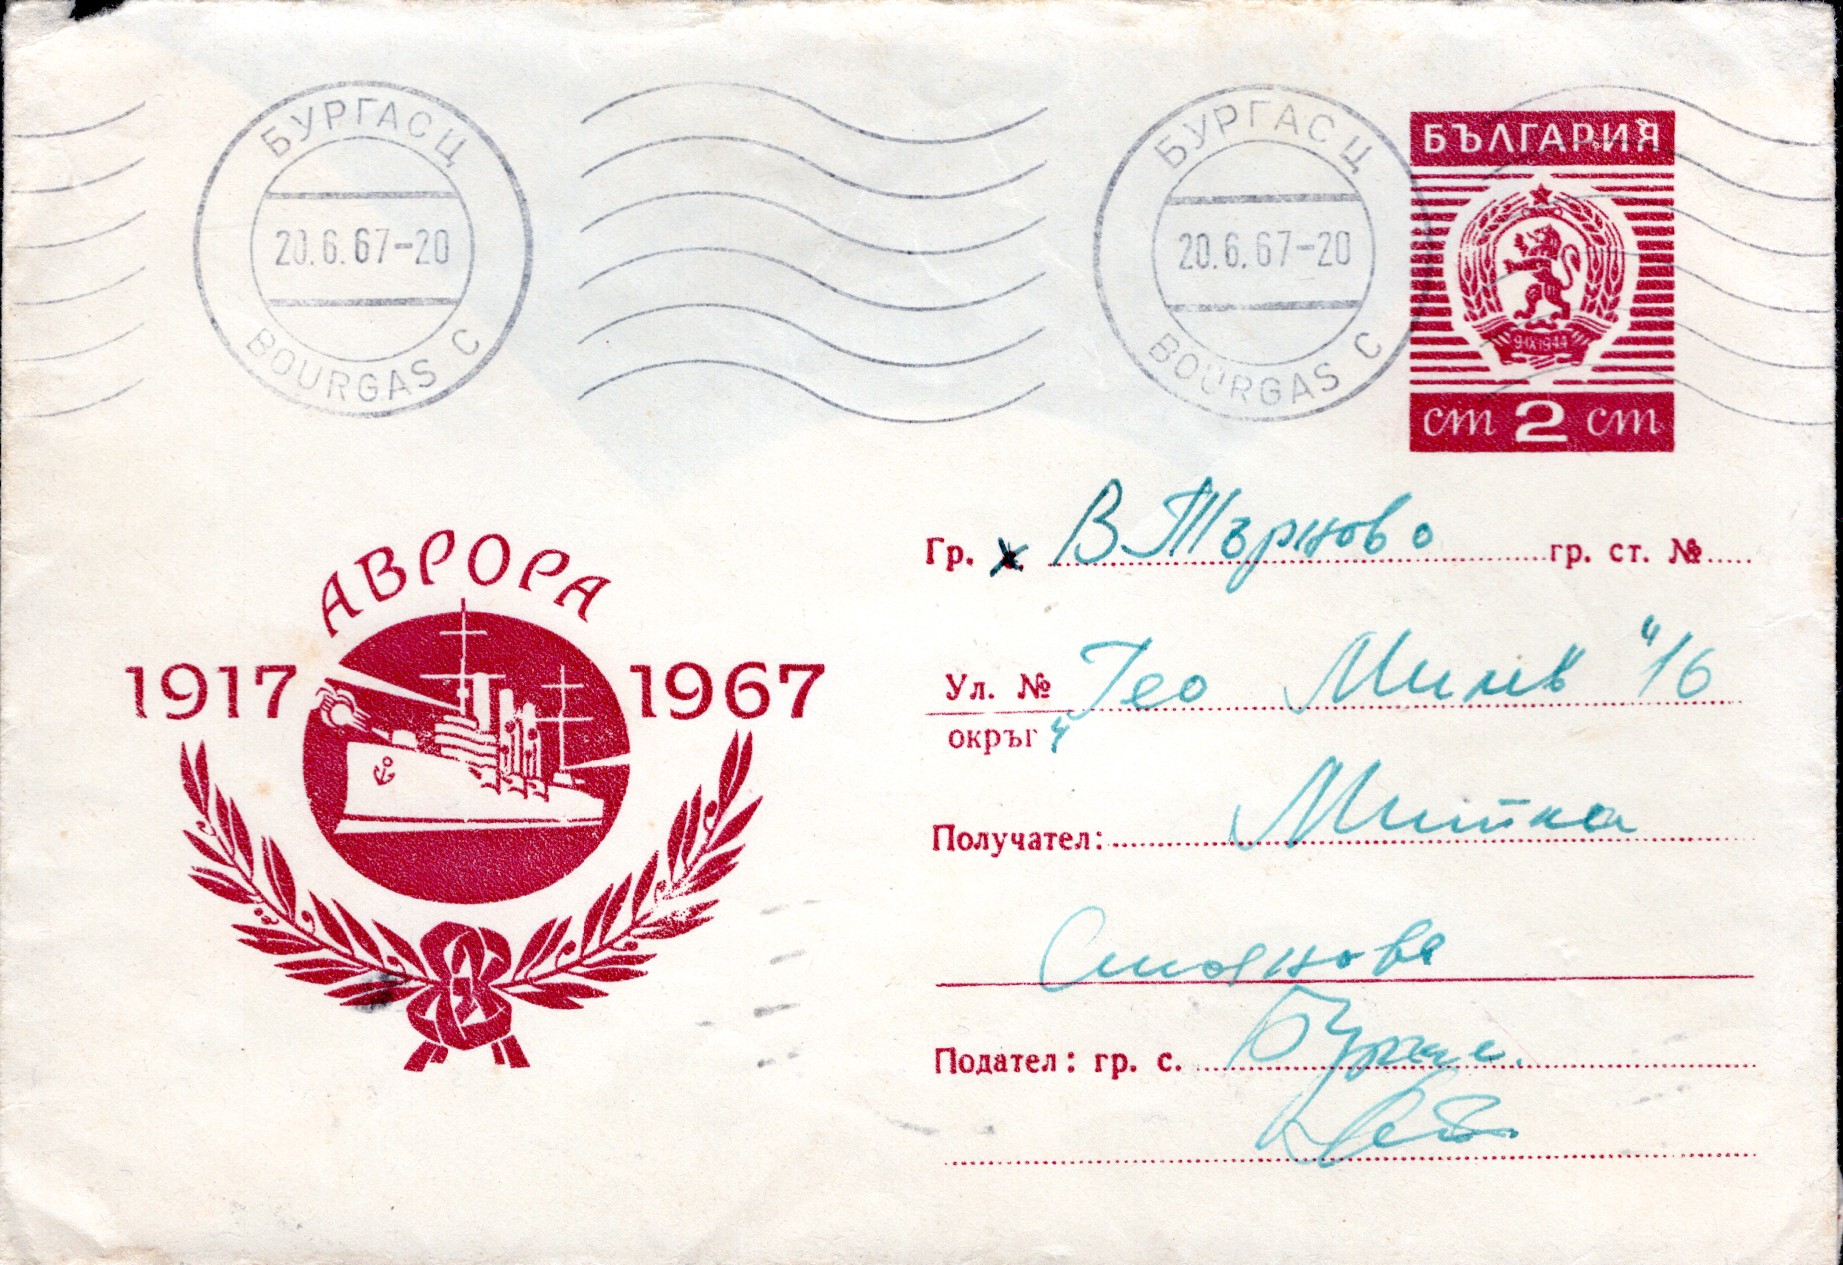 БУРГАС Ц
20.6.67-20
BOURGAS C
БУРГАС Ц
20.6.67-20
BOURGAS C
БЪЛГАРИЯ
9·IX·1944
ст 2 ст
АВРОРА
1917 1967
Гр. х. В. Търново гр. ст. №
Ул. № "Гео Милев" 16
окръг
Получател: Митка
Стоянова
Подател: гр. с. Бургас.